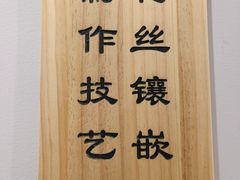 丝镶嵌
作技艺